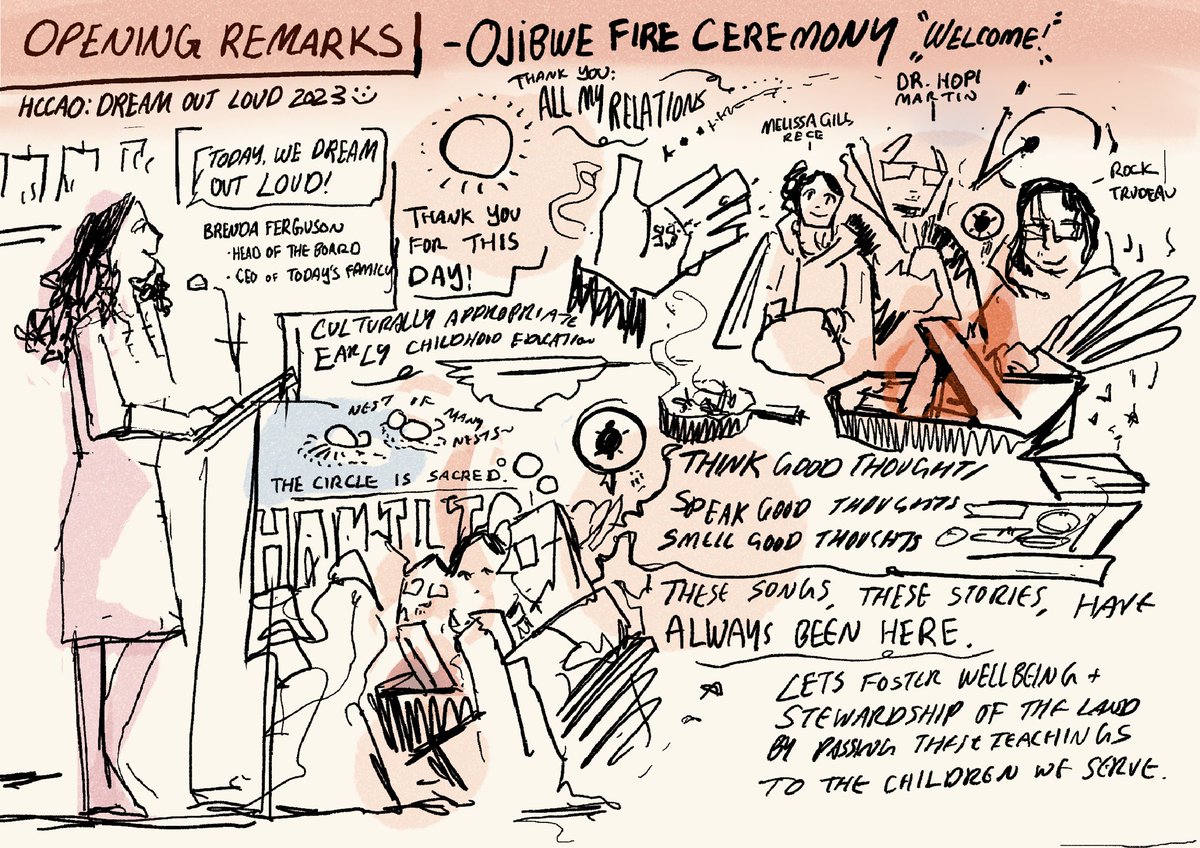 OPENING REMARKS
- OJIBWE FIRE CEREMONY
"WELCOME!"
HCCAO: DREAM OUT LOUD 2023
TODAY, WE DREAM
OUT LOUD!
BRENDA FERGUSON
· HEAD OF THE BOARD
· CEO OF TODAY'S FAMILY
THANK YOU:
ALL MY RELATIONS
THANK YOU
FOR THIS
DAY!
MELISSA GILL
RECE
DR. HOPI
MARTIN
ROCK
TRUDEAU
CULTURALLY APPROPRIATE
EARLY CHILDHOOD EDUCATION
NEST OF
MANY
NESTS~
THE CIRCLE IS SACRED.
THINK GOOD THOUGHTS
SPEAK GOOD THOUGHTS
SMELL GOOD THOUGHTS
THESE SONGS, THESE STORIES, HAVE
ALWAYS BEEN HERE.
LETS FOSTER WELLBEING +
STEWARDSHIP OF THE LAND
BY PASSING THESE TEACHINGS
TO THE CHILDREN WE SERVE.